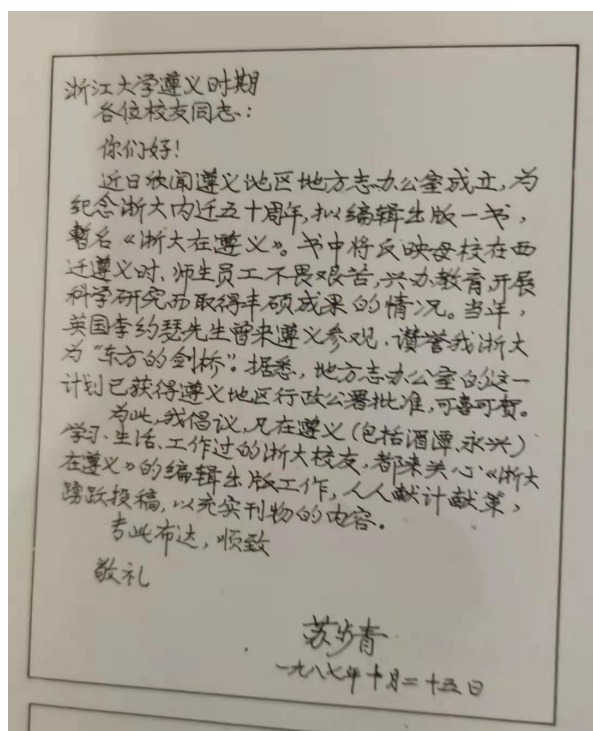 浙江大学遵义时期
各位校友同志:
你们好!
近日欣闻遵义地区地方志办公室成立,为
纪念浙大内迁五十周年,拟编辑出版一书,
暂名《浙大在遵义》。书中将反映母校在西
迁遵义时、师生员工不畏艰苦,兴办教育,开展
科学研究而取得丰硕成果的情况。当年,
英国李约瑟先生曾来遵义参观,讚誉我浙大
为“东方的剑桥”。据悉,地方志办公室的这一
计划已获得遵义地区行政公署批准,可喜可贺。
为此,我倡议,凡在遵义(包括湄潭、永兴)
学习、生活、工作过的浙大校友,都来关心《浙大
在遵义》的编辑出版工作,人人献计献策,
踊跃投稿,以充实刊物的内容。
专此布达,顺致
敬礼
苏步青
一九八七年十月二十五日